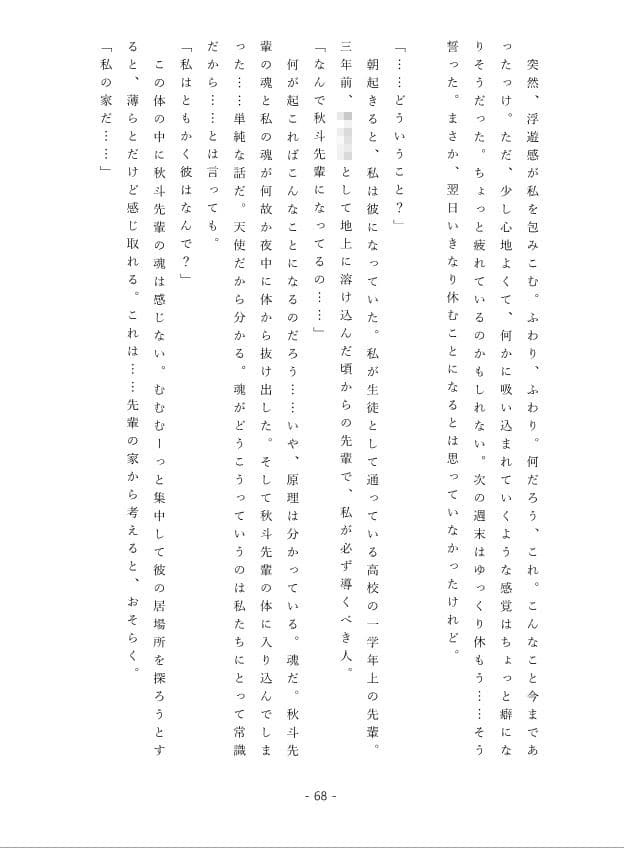 突然、浮遊感が私を包みこむ。ふわり、ふわり。何だろう、これ。こんなこと今まであ
ったっけ。ただ、少し心地よくて、何かに吸い込まれていくような感覚はちょっと癖にな
りそうだった。ちょっと疲れているのかもしれない。次の週末はゆっくり休もう……そう
誓った。まさか、翌日いきなり休むことになるとは思っていなかったけれど。
「……どういうこと？」
朝起きると、私は彼になっていた。私が生徒として通っている高校の一学年上の先輩。
三年前、として地上に溶け込んだ頃からの先輩で、私が必ず導くべき人。
「なんで秋斗先輩になってるの……」
何が起こればこんなことになるのだろう……いや、原理は分かっている。魂だ。秋斗先
輩の魂と私の魂が何故か夜中に体から抜け出した。そして秋斗先輩の体に入り込んでしま
った……単純な話だ。天使だから分かる。魂がどうこうっていうのは私たちにとって常識
だから……とは言っても。
「私はともかく彼はなんで？」
この体の中に秋斗先輩の魂は感じない。むむむーっと集中して彼の居場所を探ろうとす
ると、薄らとだけど感じ取れる。これは……先輩の家から考えると、おそらく。
「私の家だ……」
- 68 -